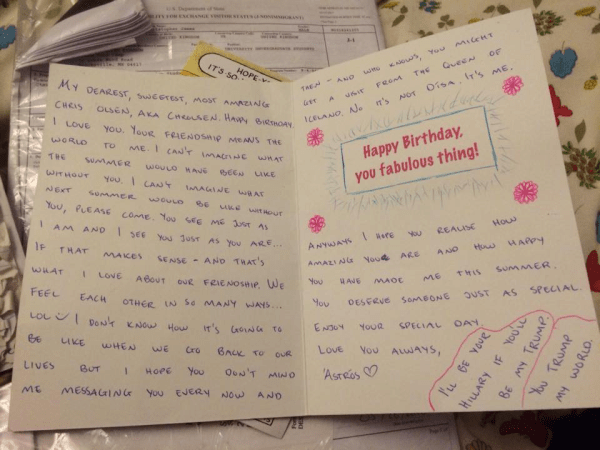 U.S. Department of State
J-1
IT'S SO
HOPE
MY DEAREST, SWEETEST, MOST AMAZING
CHRIS OLSEN, AKA CHROLSEN. HAPPY BIRTHDAY.
I LOVE YOU. YOUR FRIENDSHIP MEANS THE
WORLD TO ME. I CAN'T IMAGINE WHAT
THE SUMMER WOULD HAVE BEEN LIKE
WITHOUT YOU. I CAN'T IMAGINE WHAT
NEXT SUMMER WOULD BE LIKE WITHOUT
YOU, PLEASE COME. YOU SEE ME JUST AS
I AM AND I SEE YOU JUST AS YOU ARE...
IF THAT MAKES SENSE - AND THAT'S
WHAT I LOVE ABOUT OUR FRIENDSHIP. WE
FEEL EACH OTHER IN SO MANY WAYS...
LOL I DON'T KNOW HOW IT'S GOING TO
BE LIKE WHEN WE GO BACK TO OUR
LIVES BUT I HOPE YOU DON'T MIND
ME MESSAGING YOU EVERY NOW AND
THEN - AND WHO KNOWS, YOU MIGHT
GET A VISIT FROM THE QUEEN OF
ICELAND. NO IT'S NOT DÍSA. IT'S ME.
Happy Birthday,
you fabulous thing!
ANYWAYS I HOPE YOU REALISE HOW
AMAZING YOU ARE AND HOW HAPPY
YOU HAVE MADE ME THIS SUMMER.
YOU DESERVE SOMEONE JUST AS SPECIAL.
ENJOY YOUR SPECIAL DAY.
LOVE YOU ALWAYS,
ÁSTRÓS ♡
I'LL BE YOUR
HILLARY IF YOU'LL
BE MY TRUMP.
YOU TRUMP
MY WORLD.